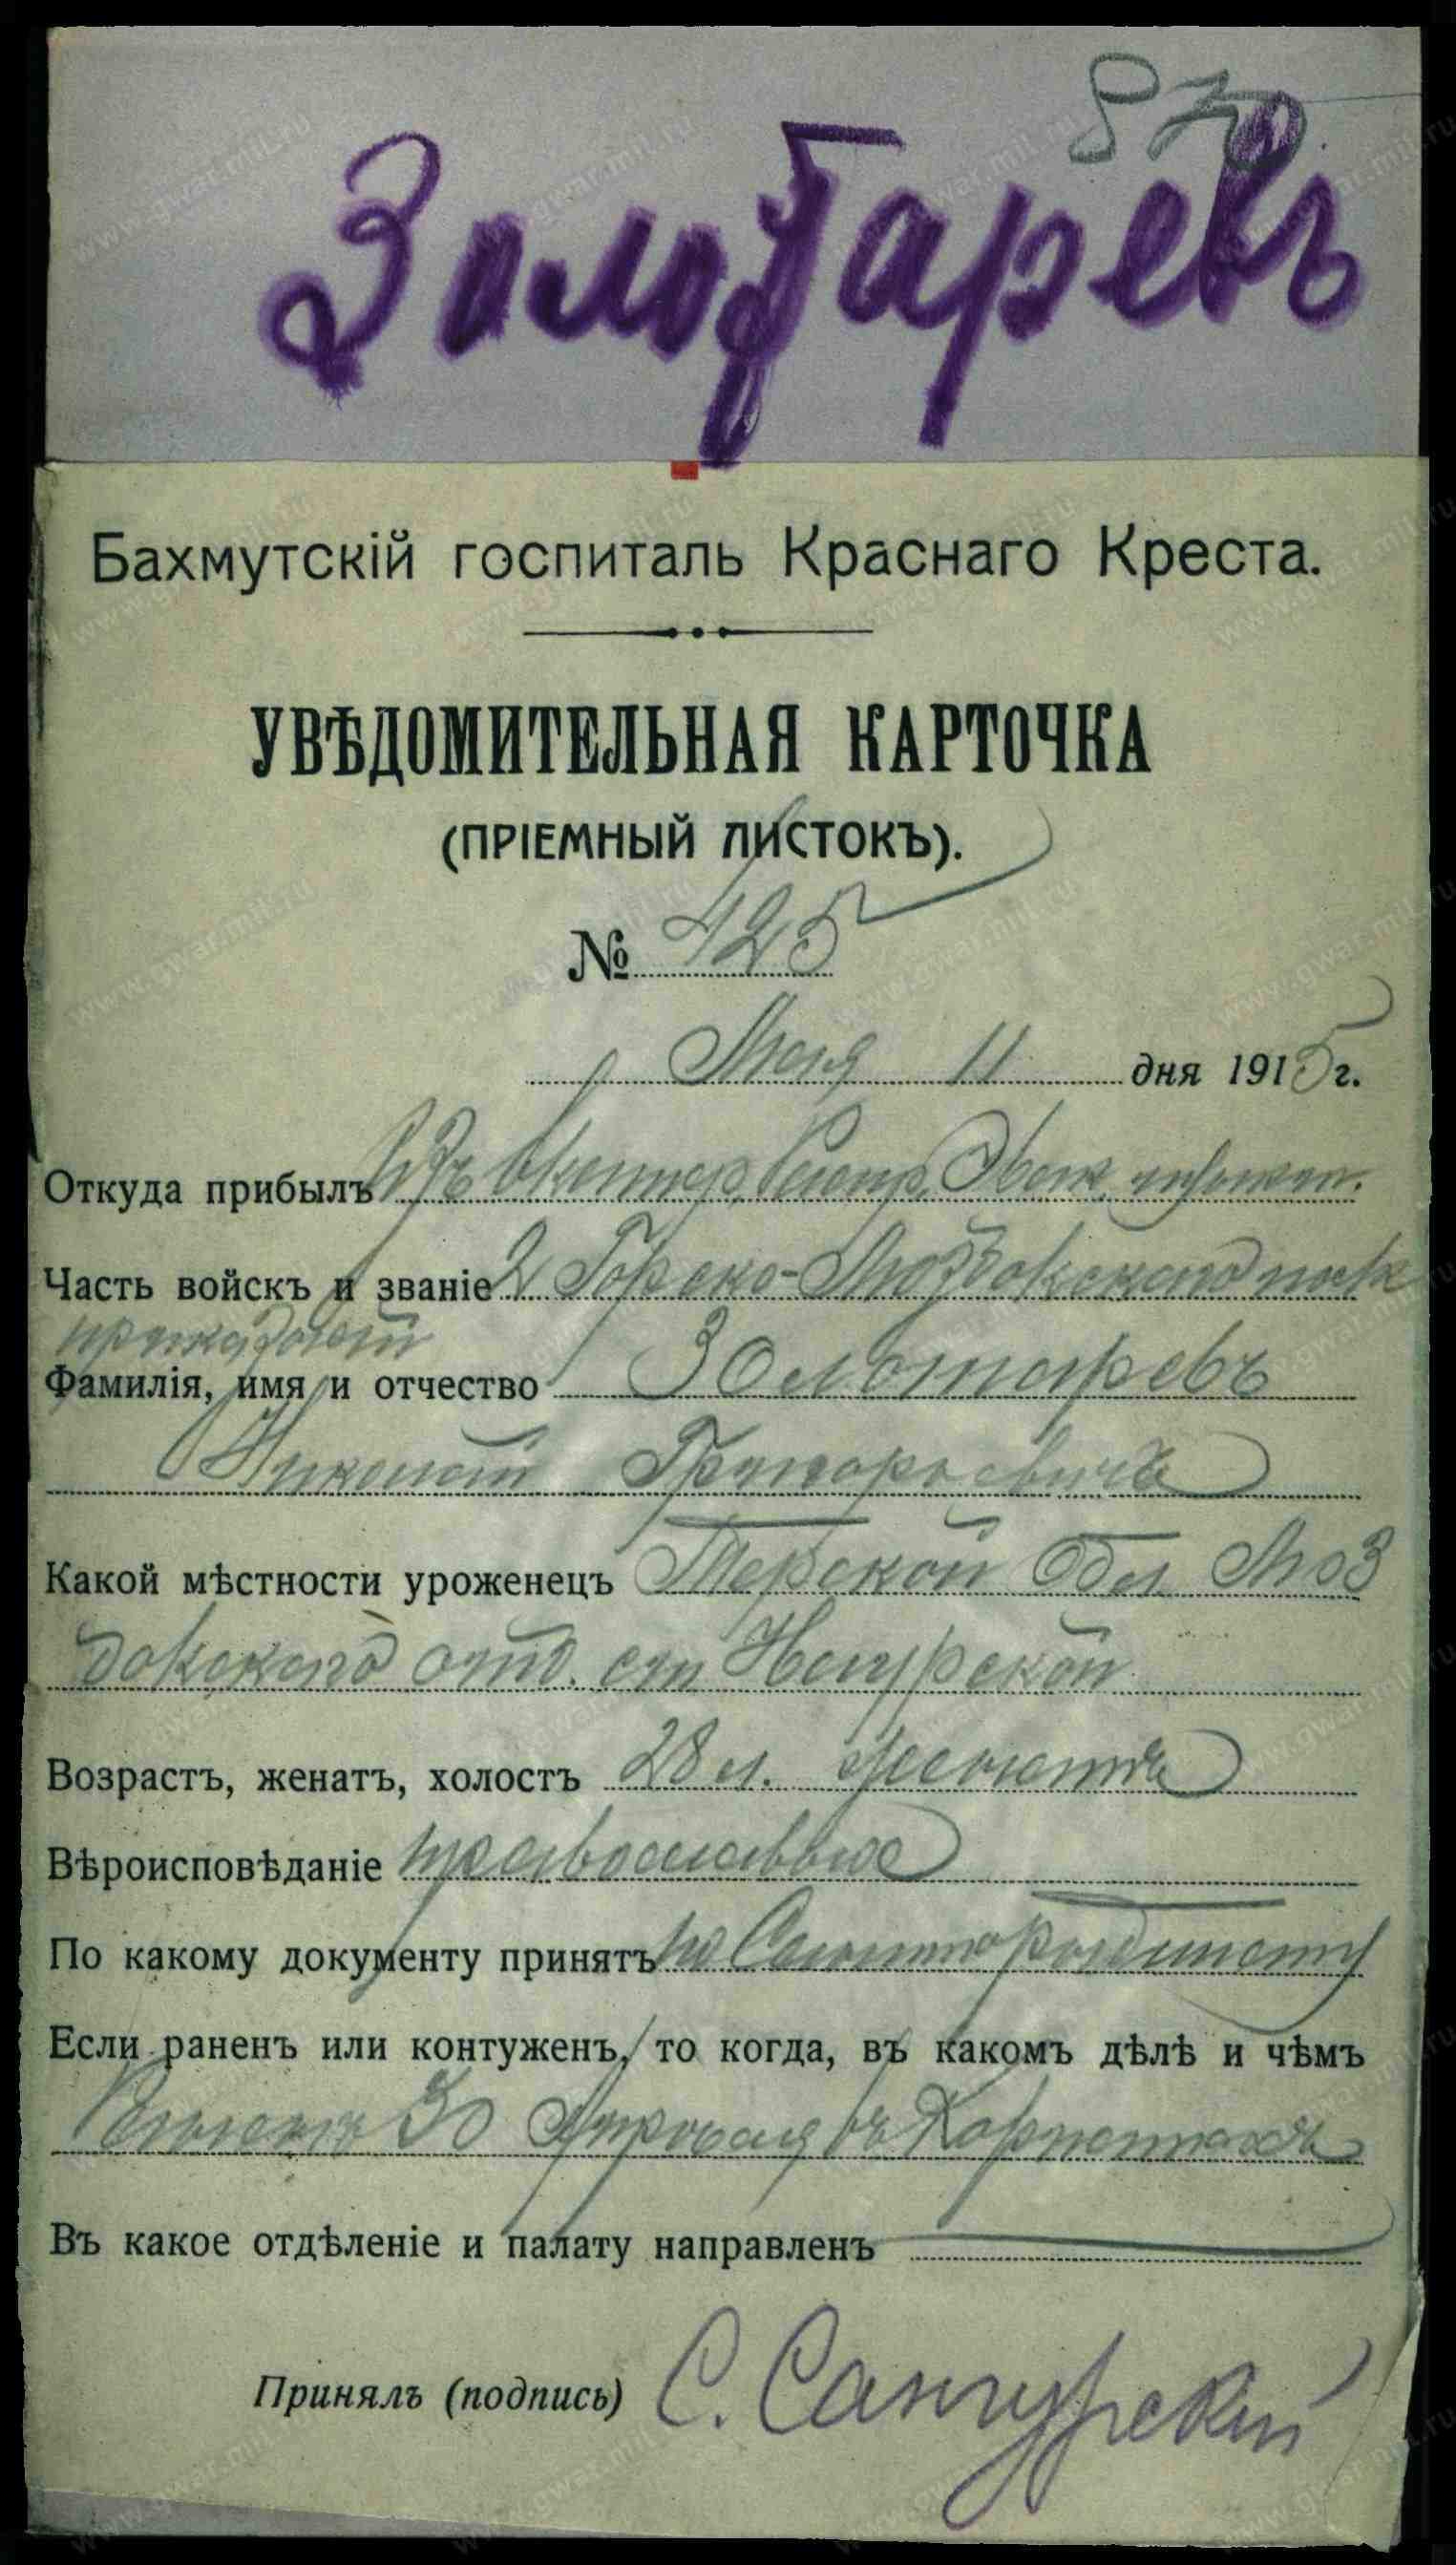 87
Золотаревъ
Бахмутскій госпиталь Краснаго Креста.
УВѢДОМИТЕЛЬНАЯ КАРТОЧКА
(ПРІЕМНЫЙ ЛИСТОКЪ).
№ 425
Мая 11 дня 1915 г.
Откуда прибылъ Изъ Екатер. Эвак.
Часть войскъ и званіе 2 Горско-Моздокского полк
приказный
Фамилія, имя и отчество Золотаревъ
Николай Григорьевичъ
Какой мѣстности уроженецъ Терской Обл Моз
докского отд. ст Наурской
Возрастъ, женатъ, холостъ 28 л. женатъ
Вѣроисповѣданіе православное
По какому документу принятъ по Санитарлисту
Если раненъ или контуженъ, то когда, въ какомъ дѣлѣ и чѣмъ
30 Апреля въ Карпатахъ
Въ какое отдѣленіе и палату направленъ
Принялъ (подпись) С. Сангурскій
www.gwar.mil.ru